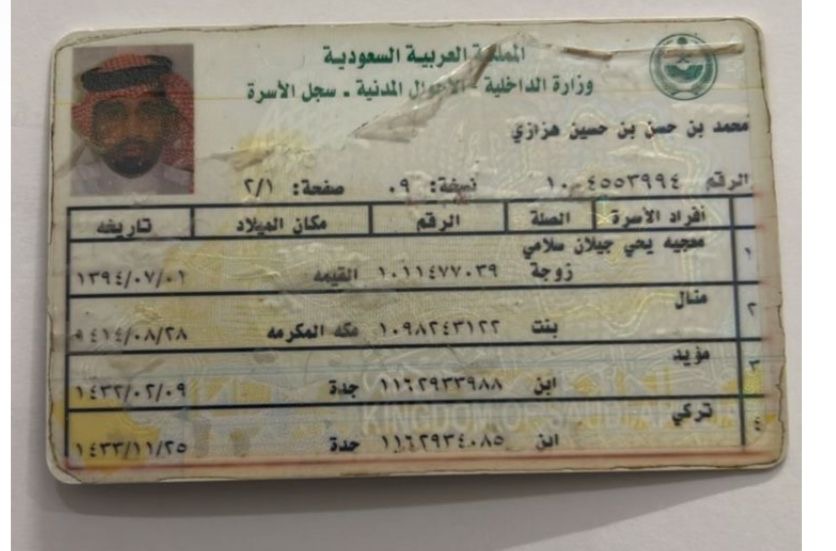 المملكة العربية السعودية
وزارة الداخلية - الأحوال المدنية - سجل الأسرة
محمد بن حسن بن حسين هزازي
الرقم ١٠٠٤٥٥٣٩٩٤ نسخة: ٠٩ صفحة: ٢/١
أفراد الأسرة الصلة الرقم مكان الميلاد تاريخه
١ معجبه يحي جيلان سلامي
زوجة ١٠١١٤٧٧٠٣٩ القيمه ١٣٩٤/٠٧/٠١
٢ منال
بنت ١٠٩٨٢٤٣١٢٢ مكه المكرمه ١٤١٤/٠٨/٢٨
٣ مؤيد
ابن ١١٦٢٩٣٣٩٨٨ جدة ١٤٣٢/٠٢/٠٩
٤ تركي
ابن ١١٦٢٩٣٤٠٨٥ جدة ١٤٣٣/١١/٢٥
KINGDOM OF SAUDI